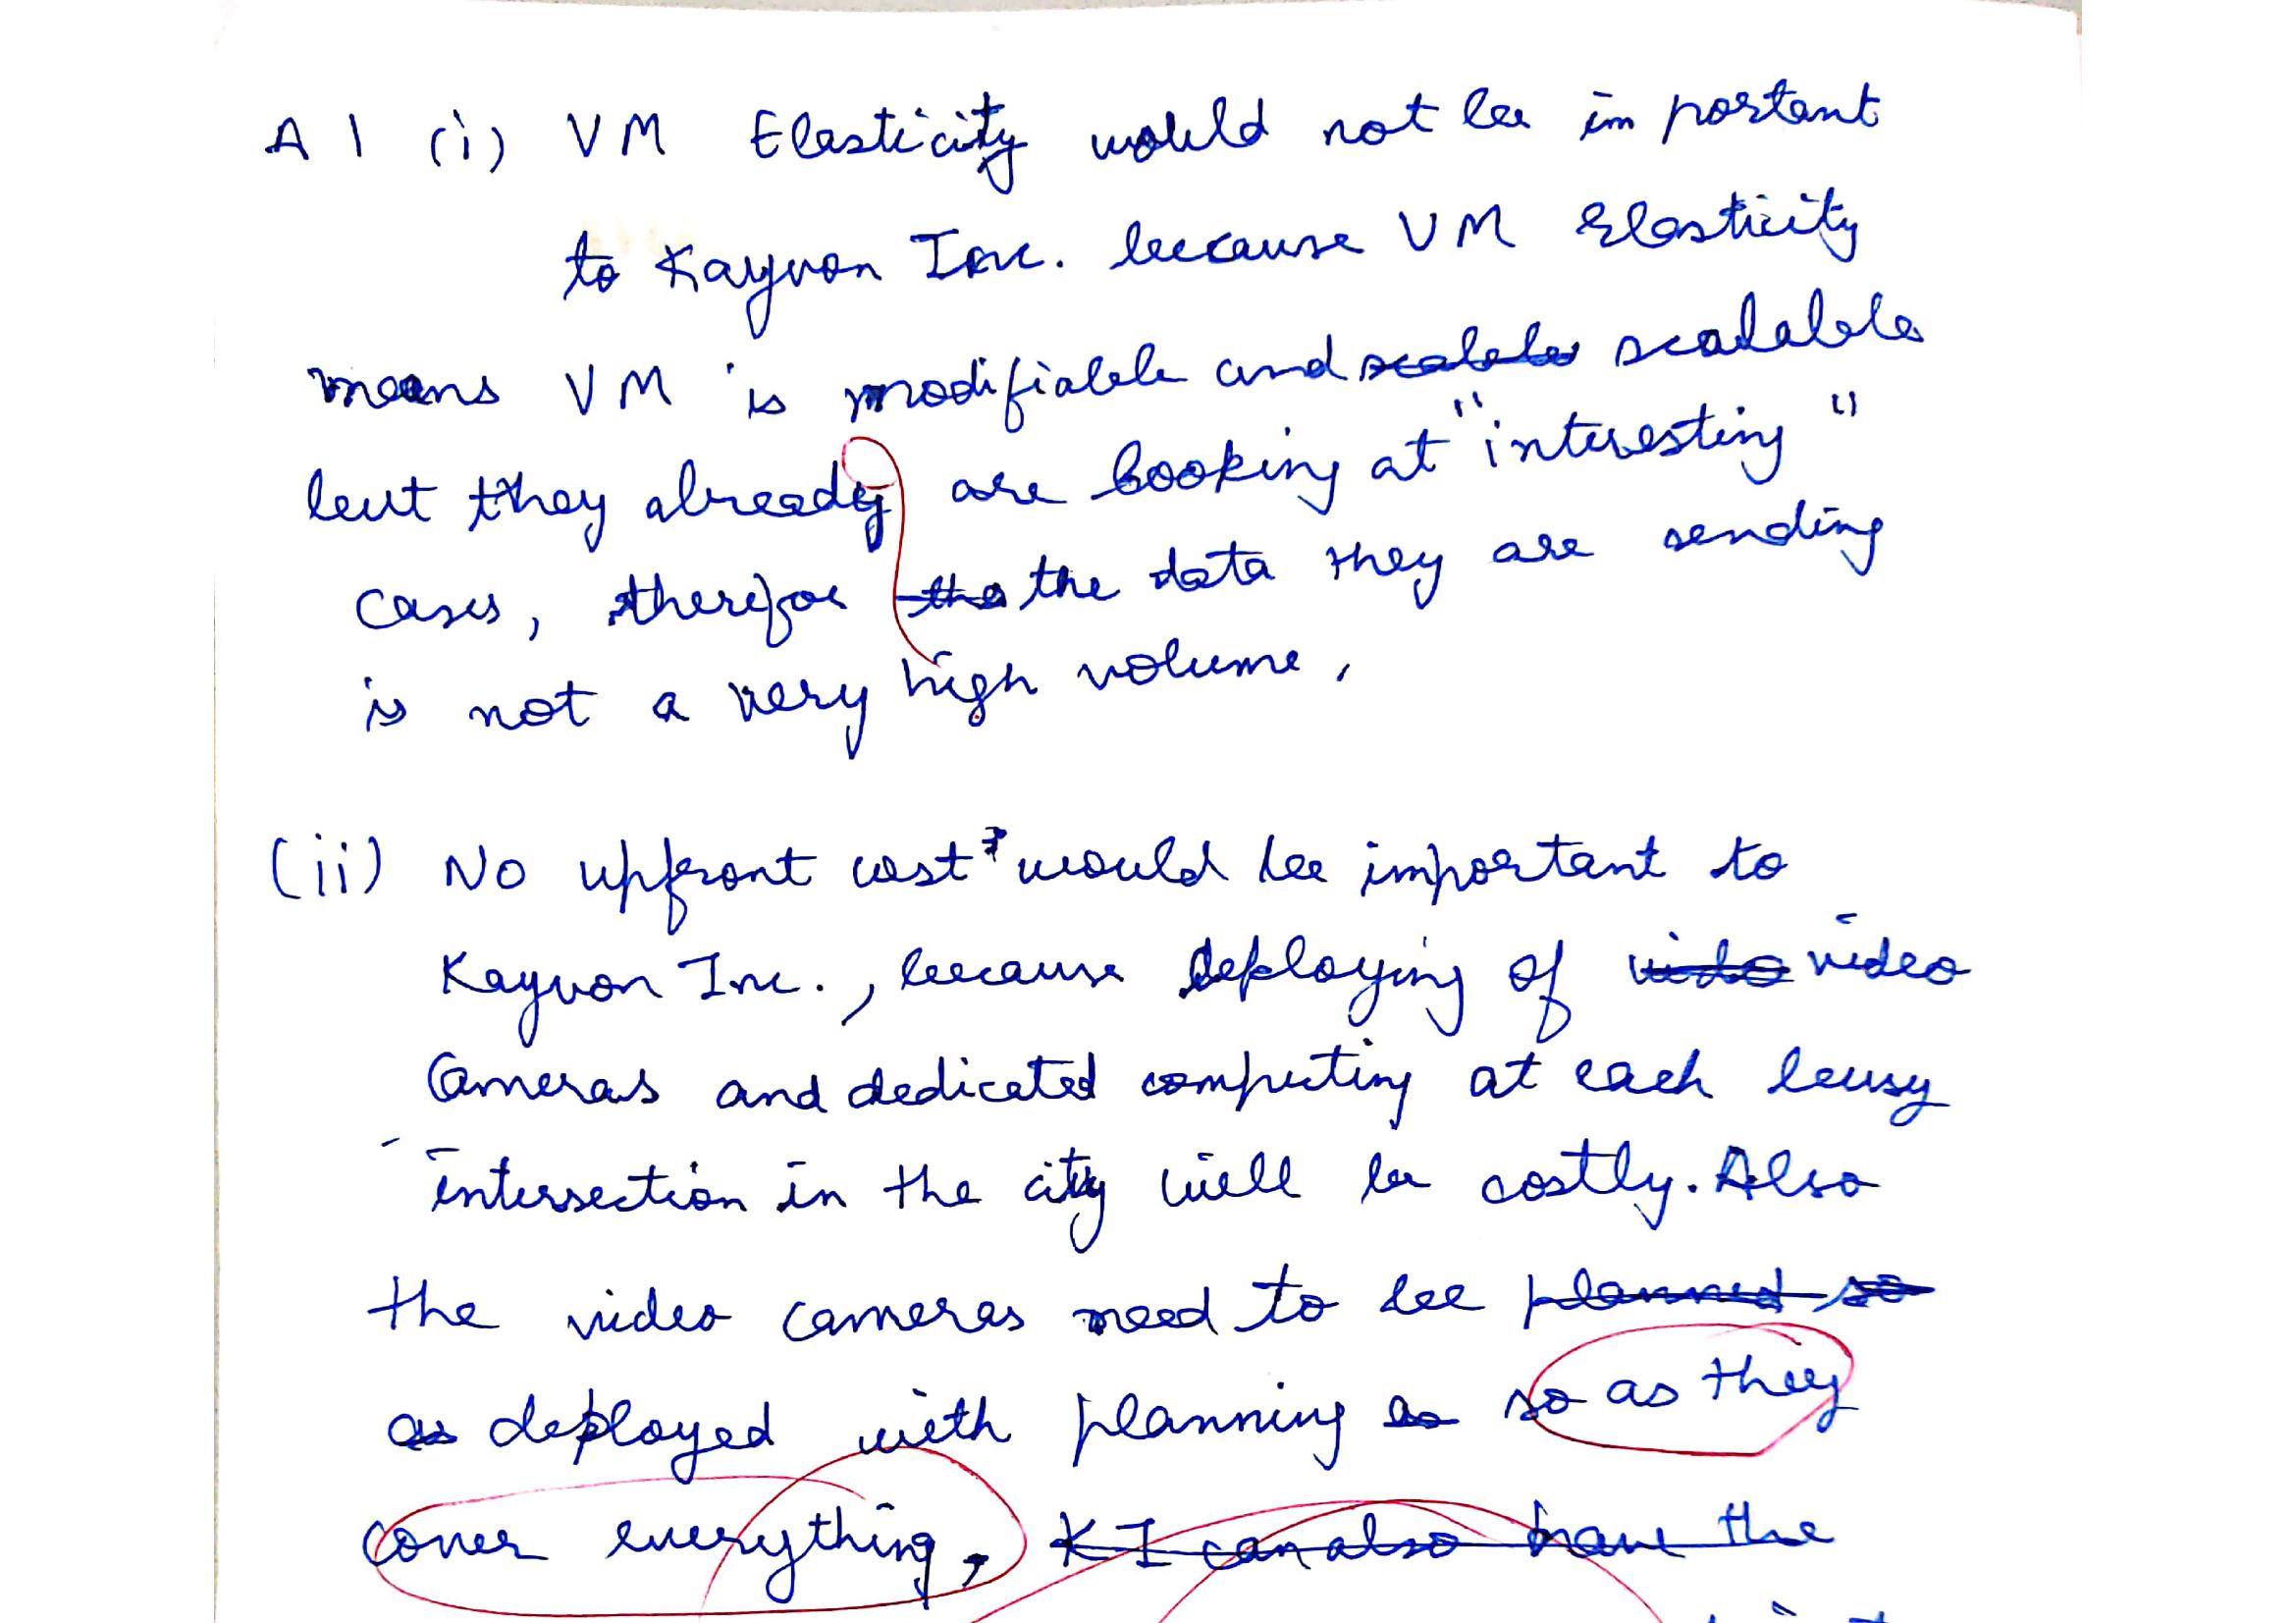 A 1 (i) VM Elasticity would not be important
to Kayvon Inc. because VM Elasticity
means VM is modifiable and scalable scalable
but they already are looking at "interesting"
cases, therefor the the data they are sending
is not a very high volume.
(ii) No upfront cost would be important to
Kayvon Inc., because deploying of video video
Cameras and dedicated computing at each busy
intersection in the city will be costly. Also
the video cameras need to be planned so
as deployed with planning as so as they
cover everything, KI can also have the